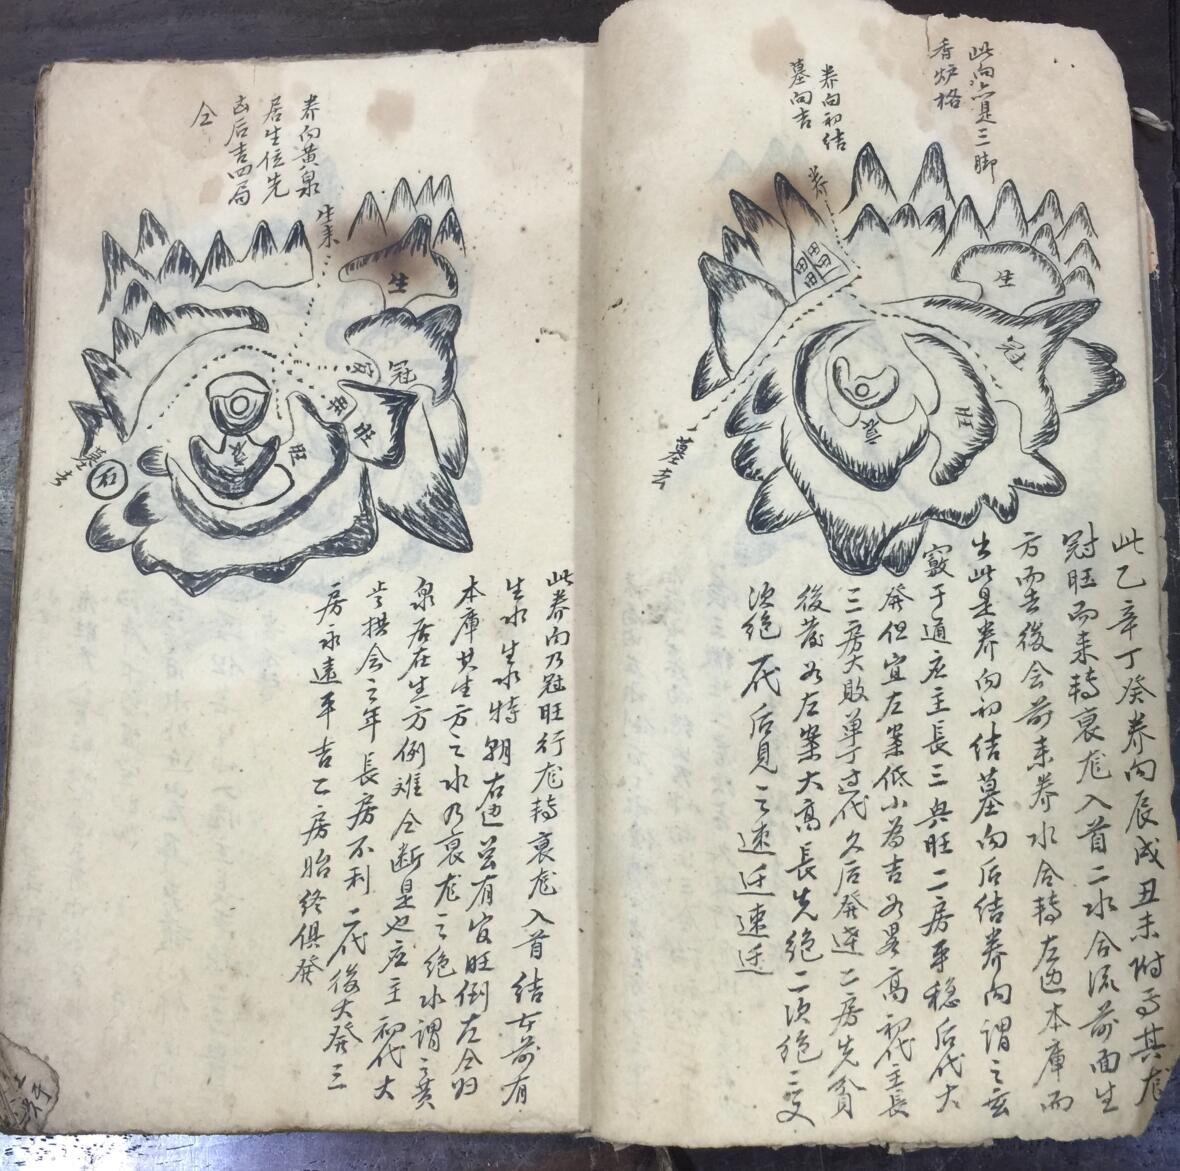 此向亦是三脚
香炉格
养向初结
墓向吉
养
生
冠
旺
衰
墓去
此乙辛丁癸养向辰戌丑未附焉其龙
冠旺而来转衰龙入首二水合流前面生
方而去後会前来养水合转左边本庫而
出此是养向初结墓向后结养向谓之玄
竅于通应主長三兴旺二房平穏后代大
發但宜左案低小為吉若是高初代主長
三房大敗単丁过代久后發达二房先貧
後發若左案大高長先绝二次绝三又
次绝一代后見之速迁速迁
养向黄泉
居生位先
凶后吉四局
仝
生来
生
官
冠
旺
旺
衰
墓去
石
此养向乃冠旺行龙转衰龙入首结穴前有
生水生水特朝右边並有官旺倒左合归
本庫其生方之水乃衰龙之绝水謂之黄
泉居在生方例难仝断是也应主初代大
步拱会之年長房不利二代後大發三
房永遠平吉乙房始終俱發